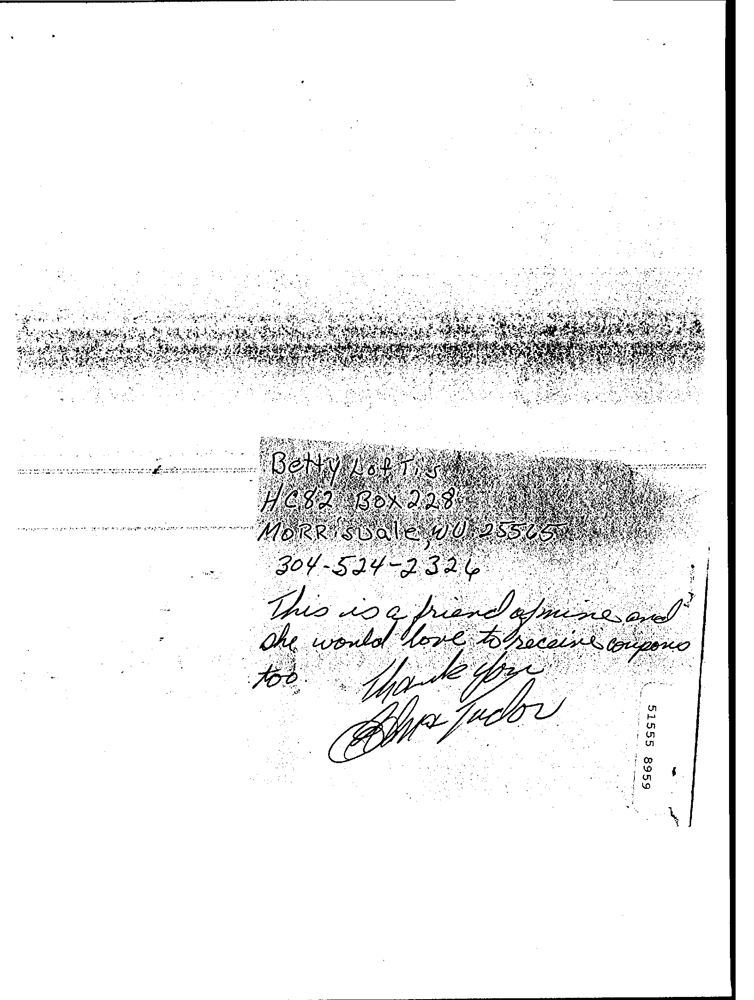 Betty Loftis
HC82 Box 228
MORRisvale, WV 25565
304-524-2326
This is a friend of mine and
she would love to receive coupons
too
Thank you
Tudor
51555 8959